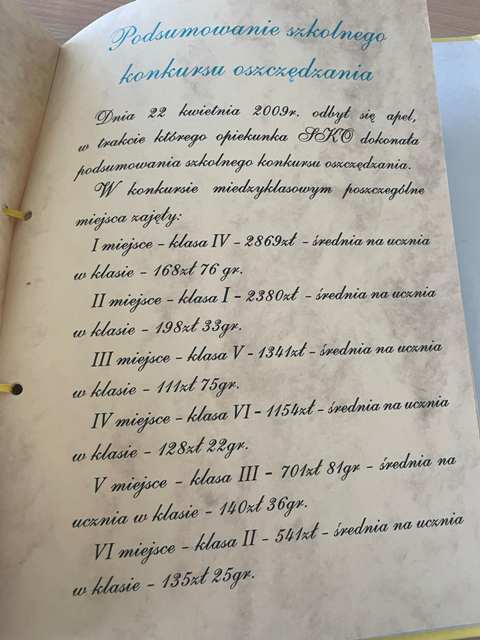 Podsumowanie szkolnego
konkursu oszczędzania
Dnia 22 kwietnia 2009r. odbył się apel,
w trakcie którego opiekunka SKO dokonała
podsumowania szkolnego konkursu oszczędzania.
W konkursie miedzyklasowym poszczególne
miejsca zajęły:
I miejsce - klasa IV - 2869zł - średnia na ucznia
w klasie - 168zł 76 gr.
II miejsce - klasa I - 2380zł - średnia na ucznia
w klasie - 198zł 33gr.
III miejsce - klasa V - 1341zł - średnia na ucznia
w klasie - 111zł 75gr.
IV miejsce - klasa VI - 1154zł - średnia na ucznia
w klasie - 128zł 22gr.
V miejsce - klasa III - 701zł 81gr - średnia na
ucznia w klasie - 140zł 36gr.
VI miejsce - klasa II - 541zł - średnia na ucznia
w klasie - 135zł 25gr.